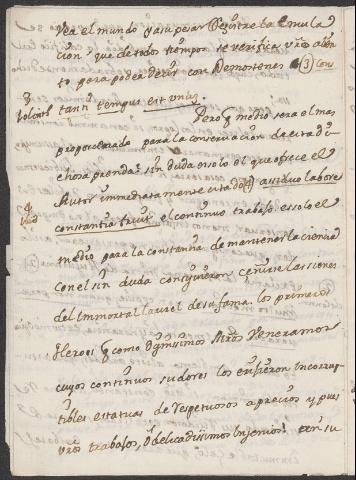 Vea el mundo y a su pesar Registre la Emula
cion, que de todos tiempos se verifica vro alien
to para poder decir con Demostenes (3) Con
tanti tempus est unus.
Pero q medio sera el mas
proporcionado para la conservacion de esta di
chosa prenda? sin duda es solo el que ofrece el
Autor immediatamente citado assiduo labore
constantia fruit el continuo trabajo es solo el
medio para la constancia de mantener la ciencia
con el sin duda consiguieron ceñirse las sienes
del immortal laurel de su fama los primeros
Heroes q como dignissimos Mros Veneramos
cuyos continuos sudores los erixieron incorrup
tibles estatuas de respetuosos aprecios y pues
vros trabajos, o delicadissimos Injenios! con su